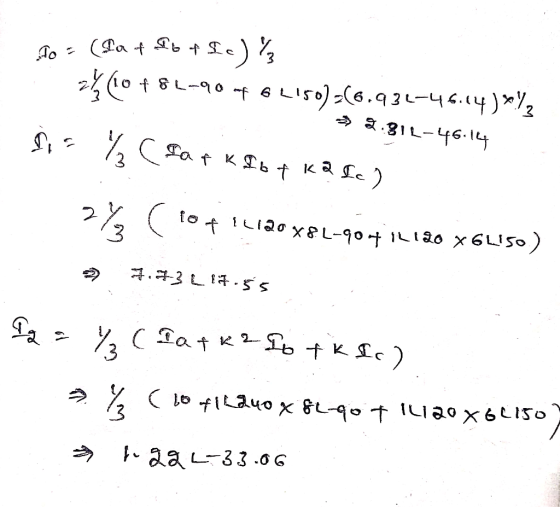 I0 = (Ia + Ib + Ic) 1/3
= 1/3 (10 + 8∠-90 + 6∠150) = (6.93∠-46.14) × 1/3
⇒ 2.31∠-46.14
I1 = 1/3 (Ia + K Ib + K2 Ic)
= 1/3 (10 + 1∠120 × 8∠-90 + 1∠120 × 6∠150)
⇒ 7.73∠17.55
I2 = 1/3 (Ia + K2 Ib + K Ic)
⇒ 1/3 (10 + 1∠240 × 8∠-90 + 1∠120 × 6∠150)
⇒ 1.22∠-33.06